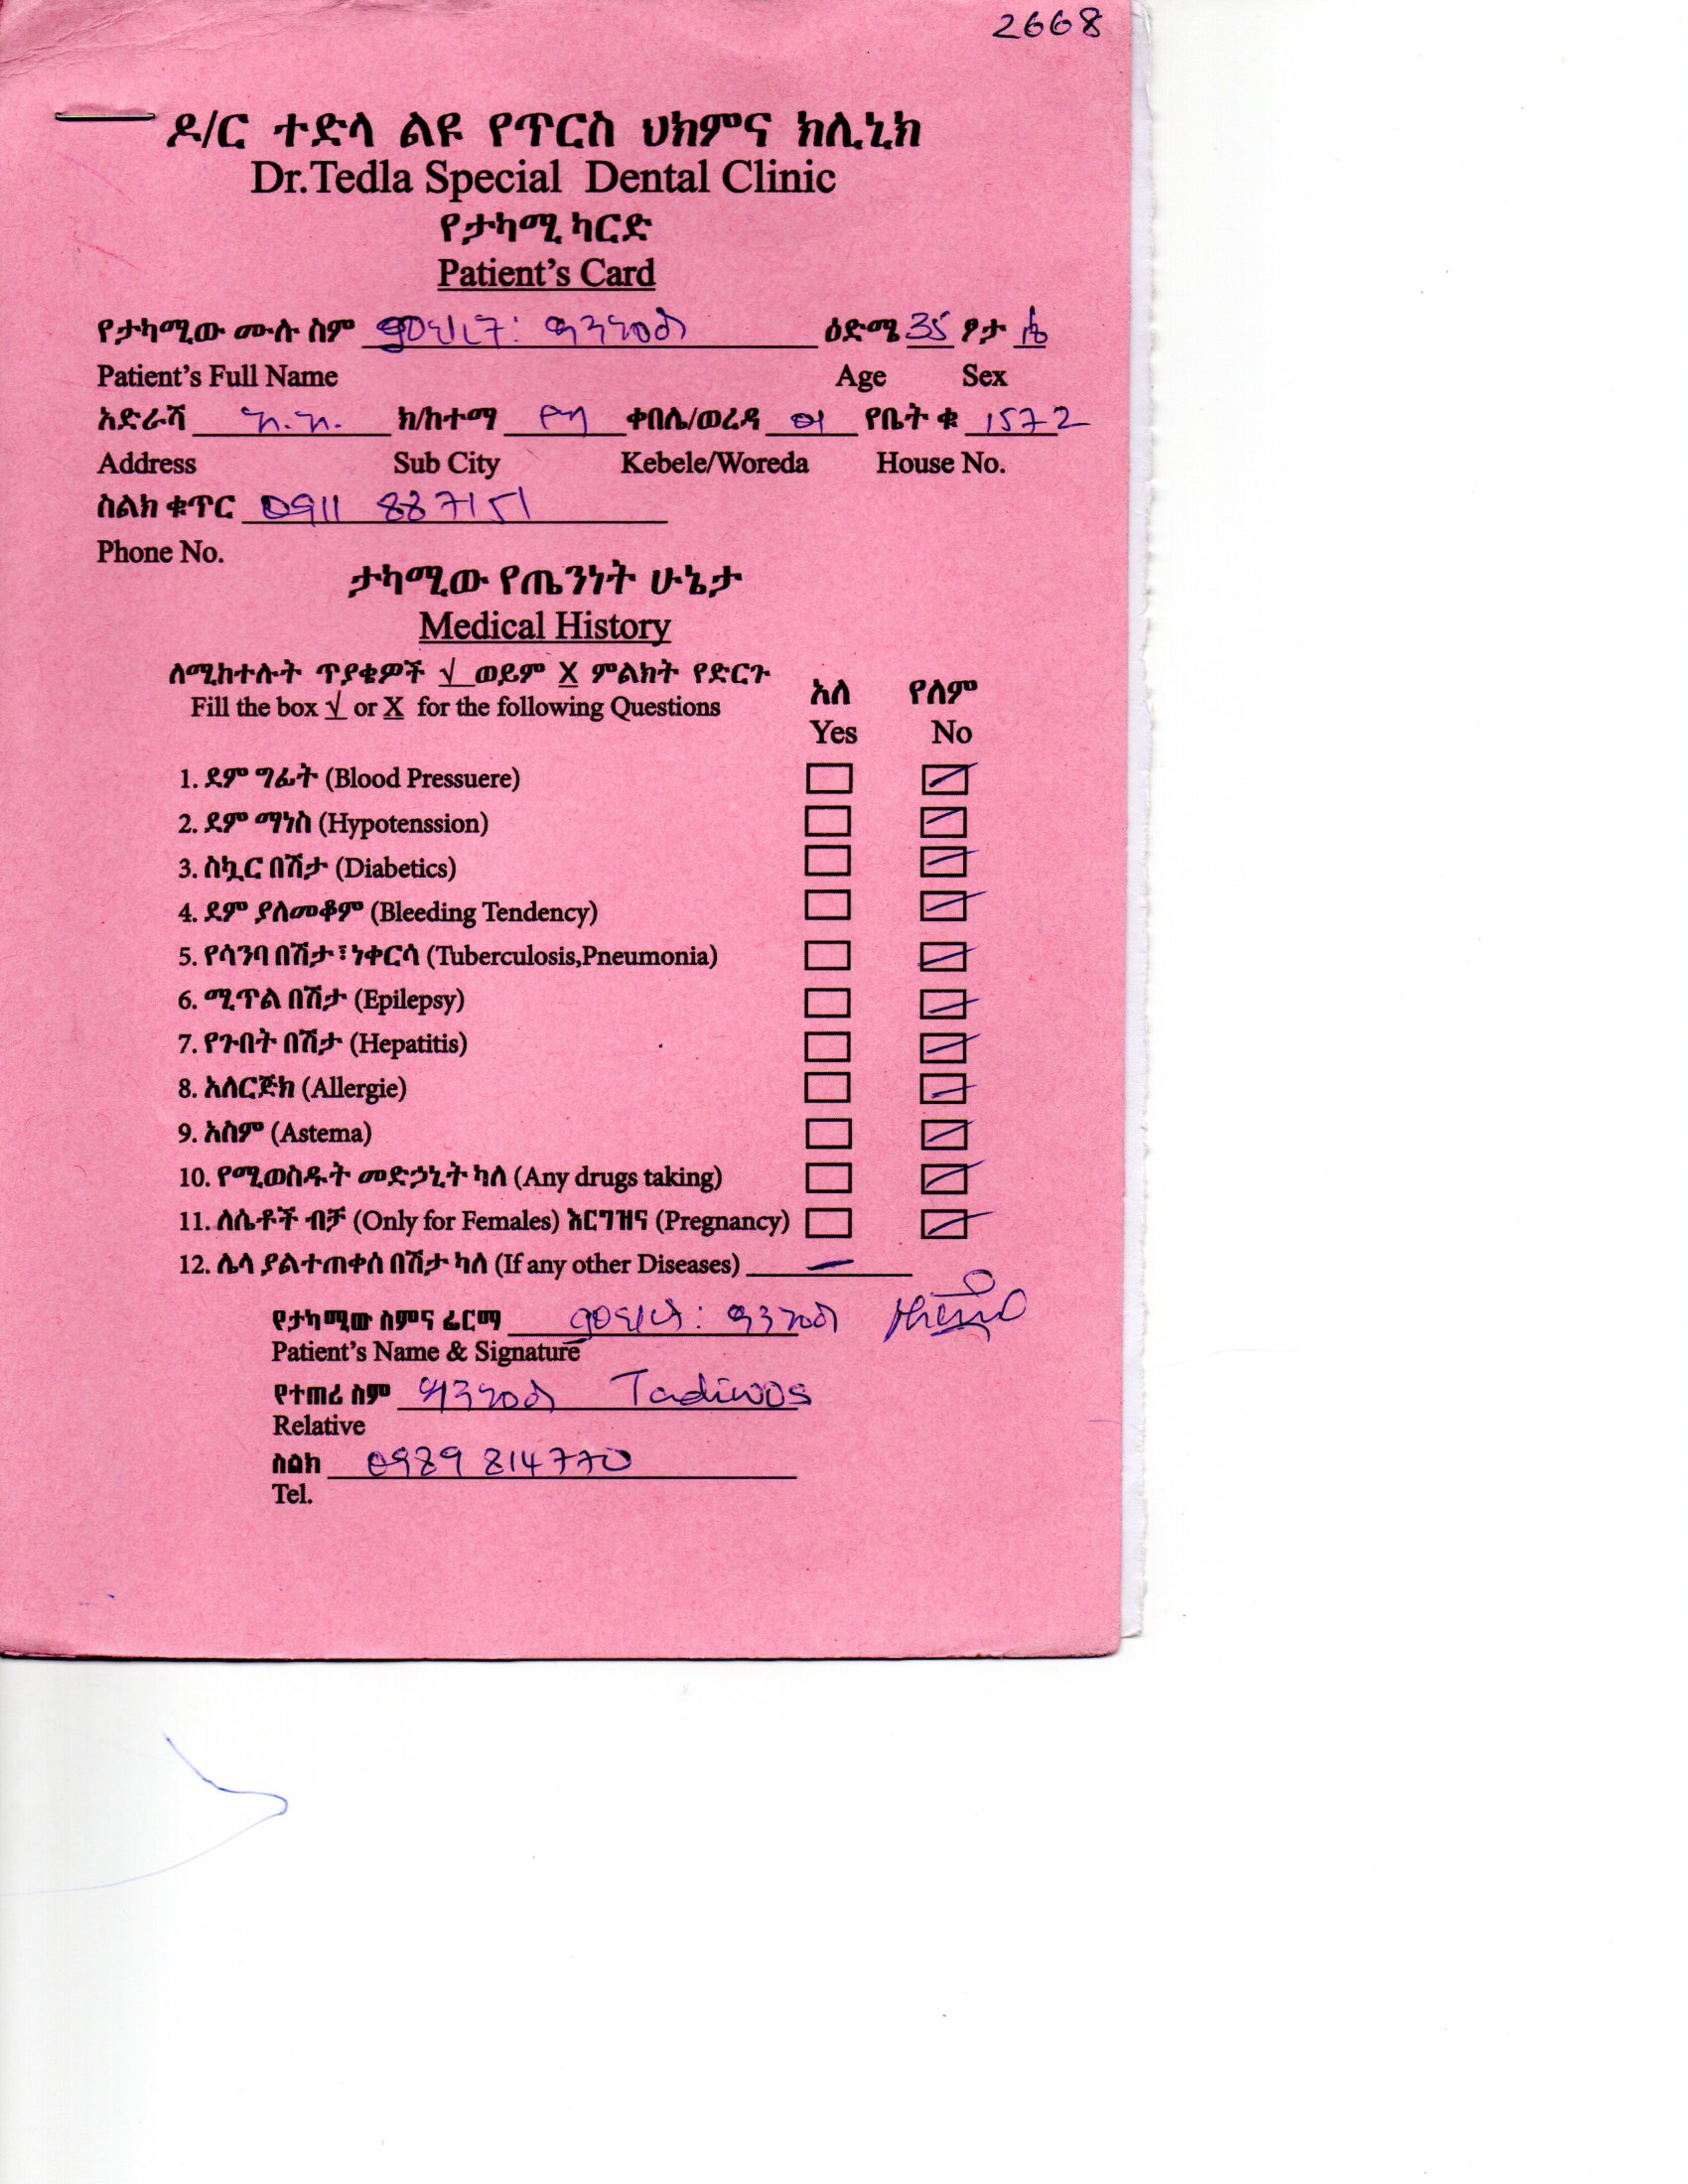 2668
ዶ/ር ተድላ ልዩ የጥርስ ህክምና ክሊኒክ
Dr.Tedla Special Dental Clinic
የታካሚ ካርድ
Patient's Card
የታካሚው ሙሉ ስም ዕድሜ 35 ፆታ ሴ
Patient's Full Name Age Sex
አድራሻ አ.አ. ክ/ከተማ የካ ቀበሌ/ወረዳ 01 የቤት ቁ 1572
Address Sub City Kebele/Woreda House No.
ስልክ ቁጥር 0911 887151
Phone No.
ታካሚው የጤንነት ሁኔታ
Medical History
ለሚከተሉት ጥያቄዎች √ ወይም X ምልክት የድርጉ አለ የለም
Fill the box √ or X for the following Questions Yes No
1. ደም ግፊት (Blood Pressuere)
2. ደም ማነስ (Hypotenssion)
3. ስኳር በሽታ (Diabetics)
4. ደም ያለመቆም (Bleeding Tendency)
5. የሳንባ በሽታ፣ነቀርሳ (Tuberculosis,Pneumonia)
6. ሚጥል በሽታ (Epilepsy)
7. የጉበት በሽታ (Hepatitis)
8. አለርጅክ (Allergie)
9. አስም (Astema)
10. የሚወስዱት መድኃኒት ካለ (Any drugs taking)
11. ለሴቶች ብቻ (Only for Females) እርግዝና (Pregnancy)
12. ሌላ ያልተጠቀሰ በሽታ ካለ (If any other Diseases)
የታካሚው ስምና ፊርማ
Patient's Name & Signature
የተጠሪ ስም Tadiwos
Relative
ስልክ 0989 814770
Tel.